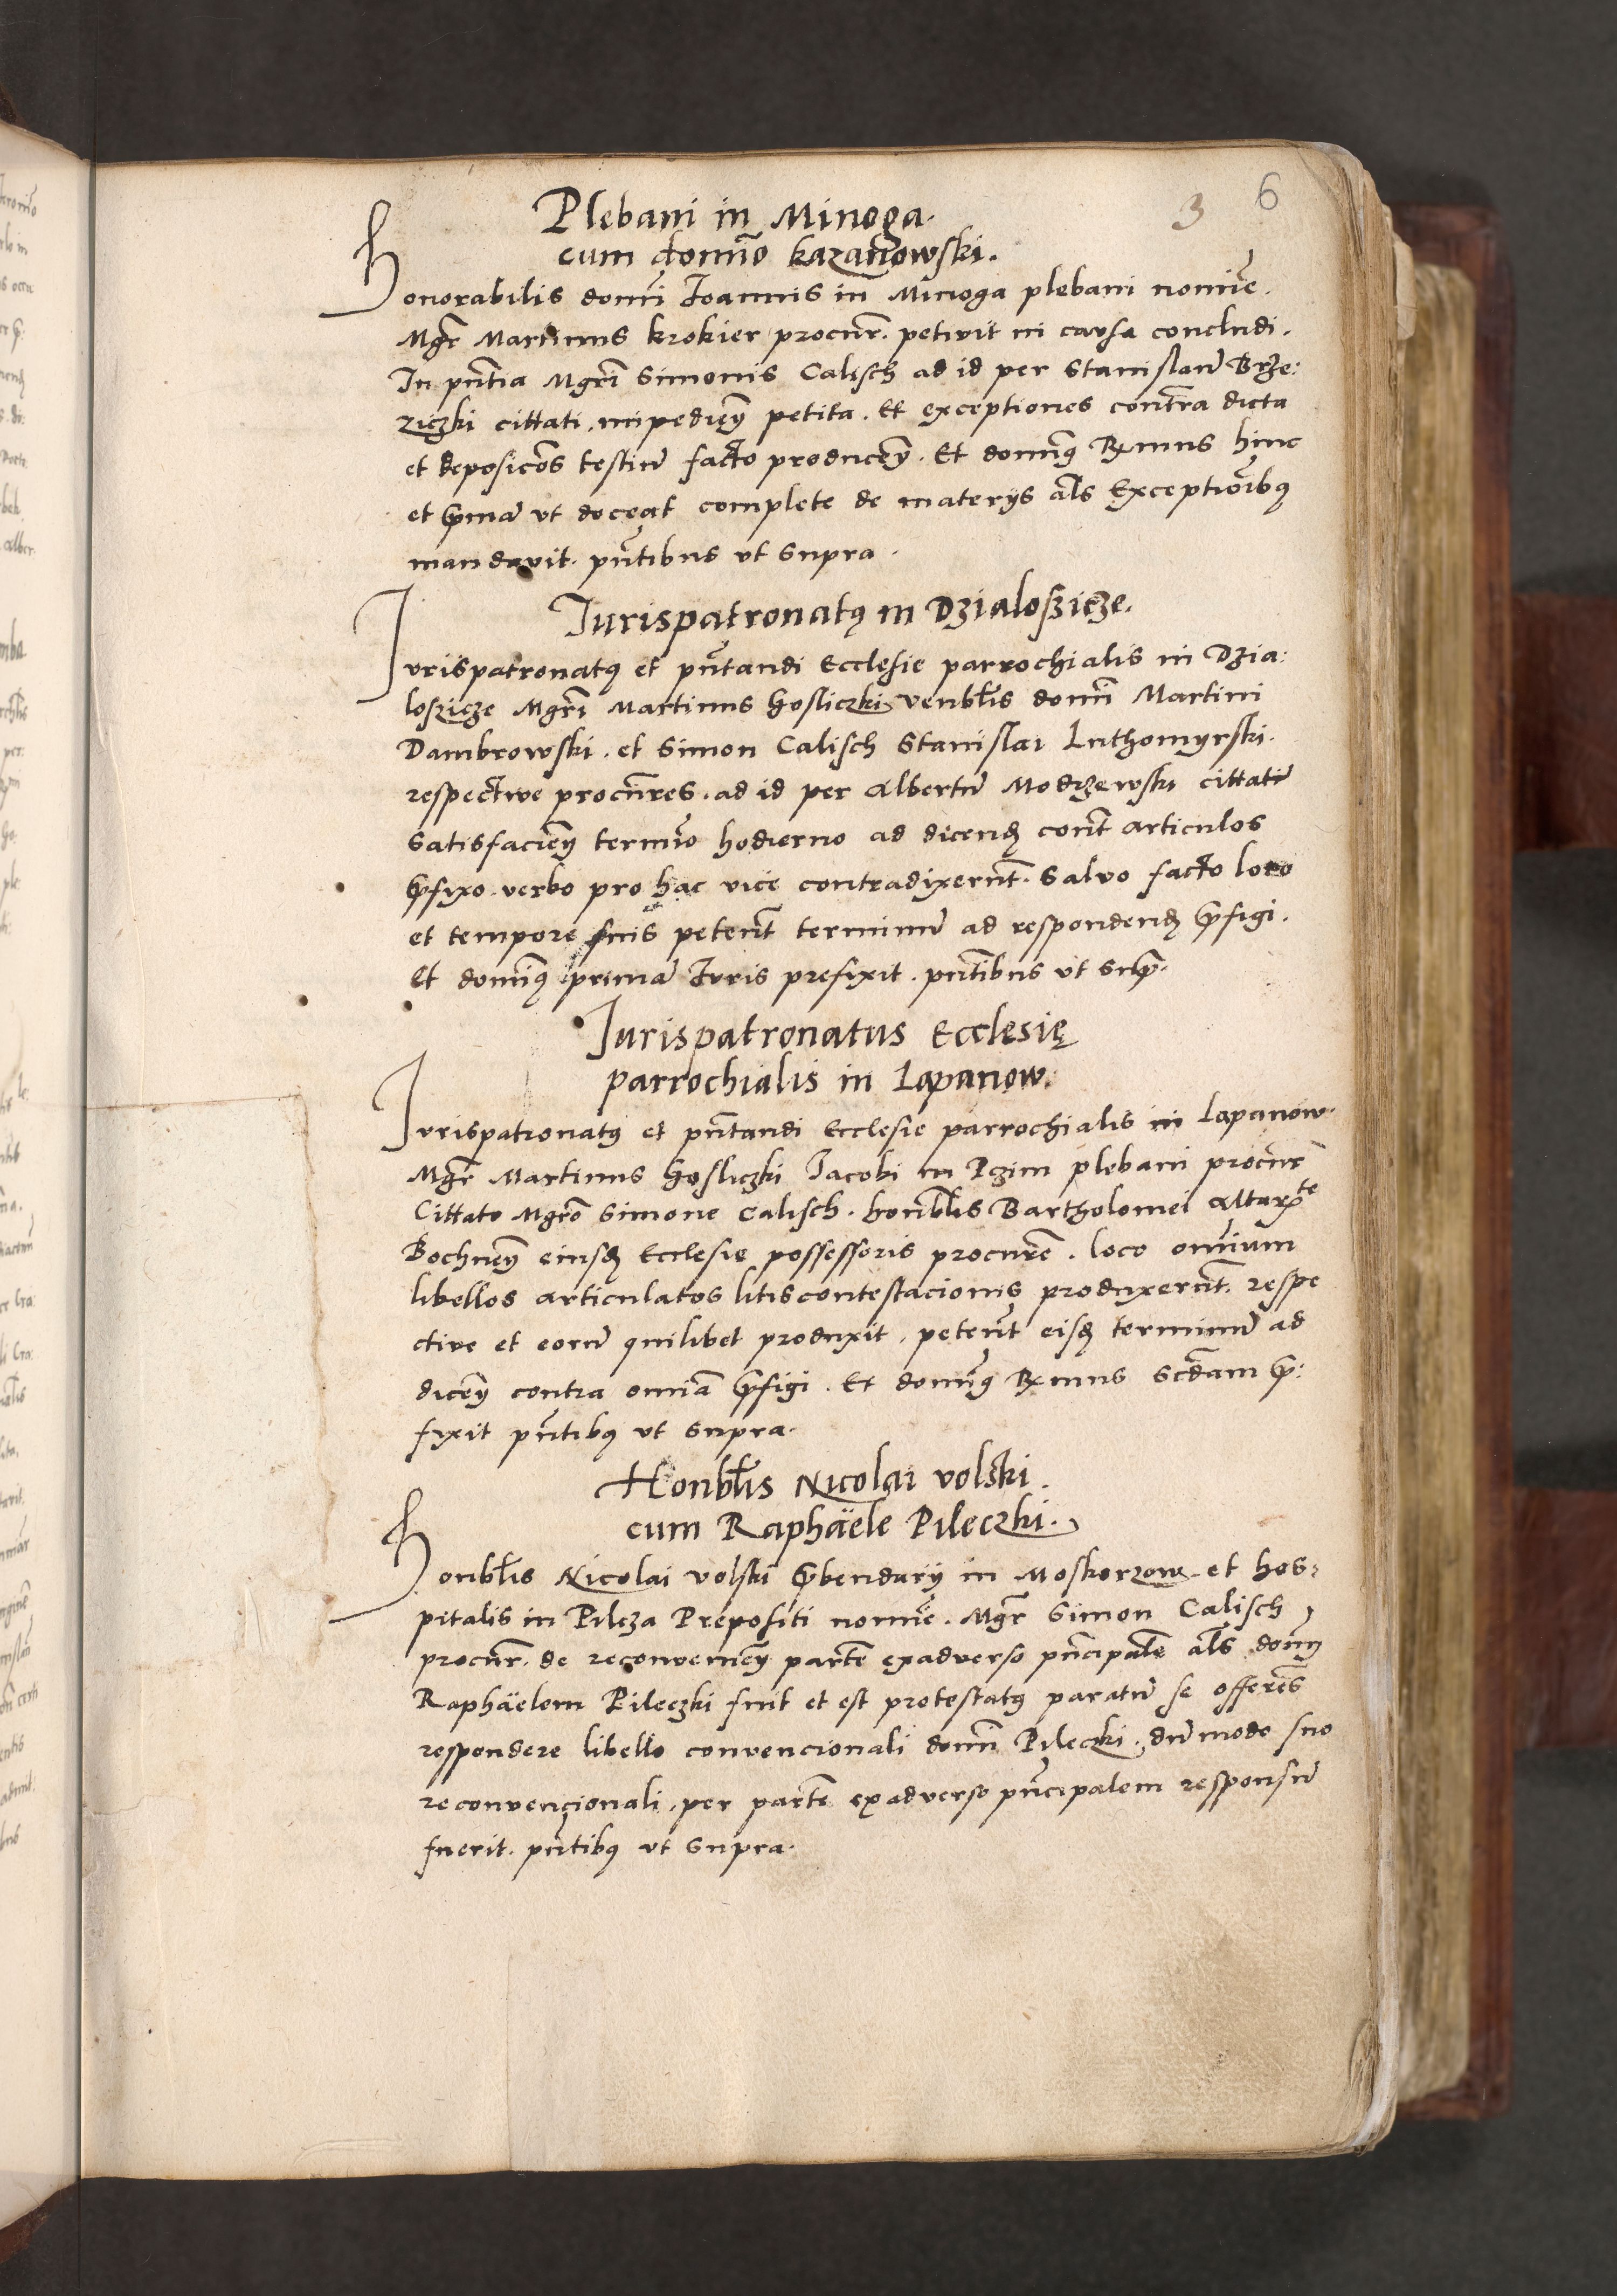 3 6
Plebani in Minoga.
cum domĩo Kazanowski.
Honorabilis domĩ Joannis in Minoga plebani nomĩe.
Mgr̃ Martinus Krokier procur̃. petivit in causa concludi.
In pñtia Mgrĩ Simonis Calisch ad id per Stanislaũ Brze:
ziczki cittati, impedieñ petita. Et exceptiones contra dicta
et deposicões testiũ facto produceñ. Et domĩꝰ Rx̃mus hinc
et p̃mã ut doceat complete de materijs al̃s Exceptioĩbꝰ
mandavit. pñtibus ut supra.
Jurispatronatꝰ in Dzialoszicze.
Jurispatronatꝰ et pñtandi Ecclesie parrochialis in Dzia:
loszicze Mgrĩ Martinus Gosliczki venbl̃is domĩ Martini
Dambrowski. et Simon Calisch Stanislai Luthomyrski.
respective procur̃es. ad id per Albertũ Modrzewski cittati
satisfacieñ termĩo hodierno ad dicenđ cont̃ articulos
p̃fixo verbo pro hac vice contradixerũt. Salvo facto loco
et tempore suis peteñt terminũ ad respondenđ p̃figi.
Et domĩꝰ primã Juris prefixit. pñtibus ut sup̃.
Jurispatronatus Ecclesię
parrochialis in Lapanow.
Jurispatronatꝰ et pñtandi Ecclesie parrochialis in Lapanow.
Mgr̃ Martinus Gosliczki Jacobi in Pczim plebani procur̃
Cittato Mgrõ Simone Calisch. honbl̃is Bartholomei Altarꝫte
Bochneñ eiusđ Ecclesie possessoris procur̃e. loco omnium
libellos articulatos litiscontestacionis produxerũt. respe
ctive et eorũ quilibet produxit. peteñt eisđ terminũ ad
diceñ contra omĩa p̃figi. Et domĩꝰ Rx̃mus scđam p̃:
fixit pñtibꝰ ut supra.
Honbl̃is Nicolai Volski.
cum Raphäele Pileczki.
Honbl̃is Nicolai Volski p̃bendarij in Moskorzow et hos:
pitalis in Pilcza Prepositi nomĩe. Mgr̃ Simon Calisch
procur̃. de reconvenieñ partẽ exadverso pñcipalẽ al̃s doñ
Raphäelem Pileczki fuit et est protestatꝰ paratũ se offereñs
respondere libello convencionali domĩ Pileczki. dũmodo suo
reconvencionali, per partẽ exadverso pñcipalem responsũ
fuerit. pñtibꝰ ut supra.